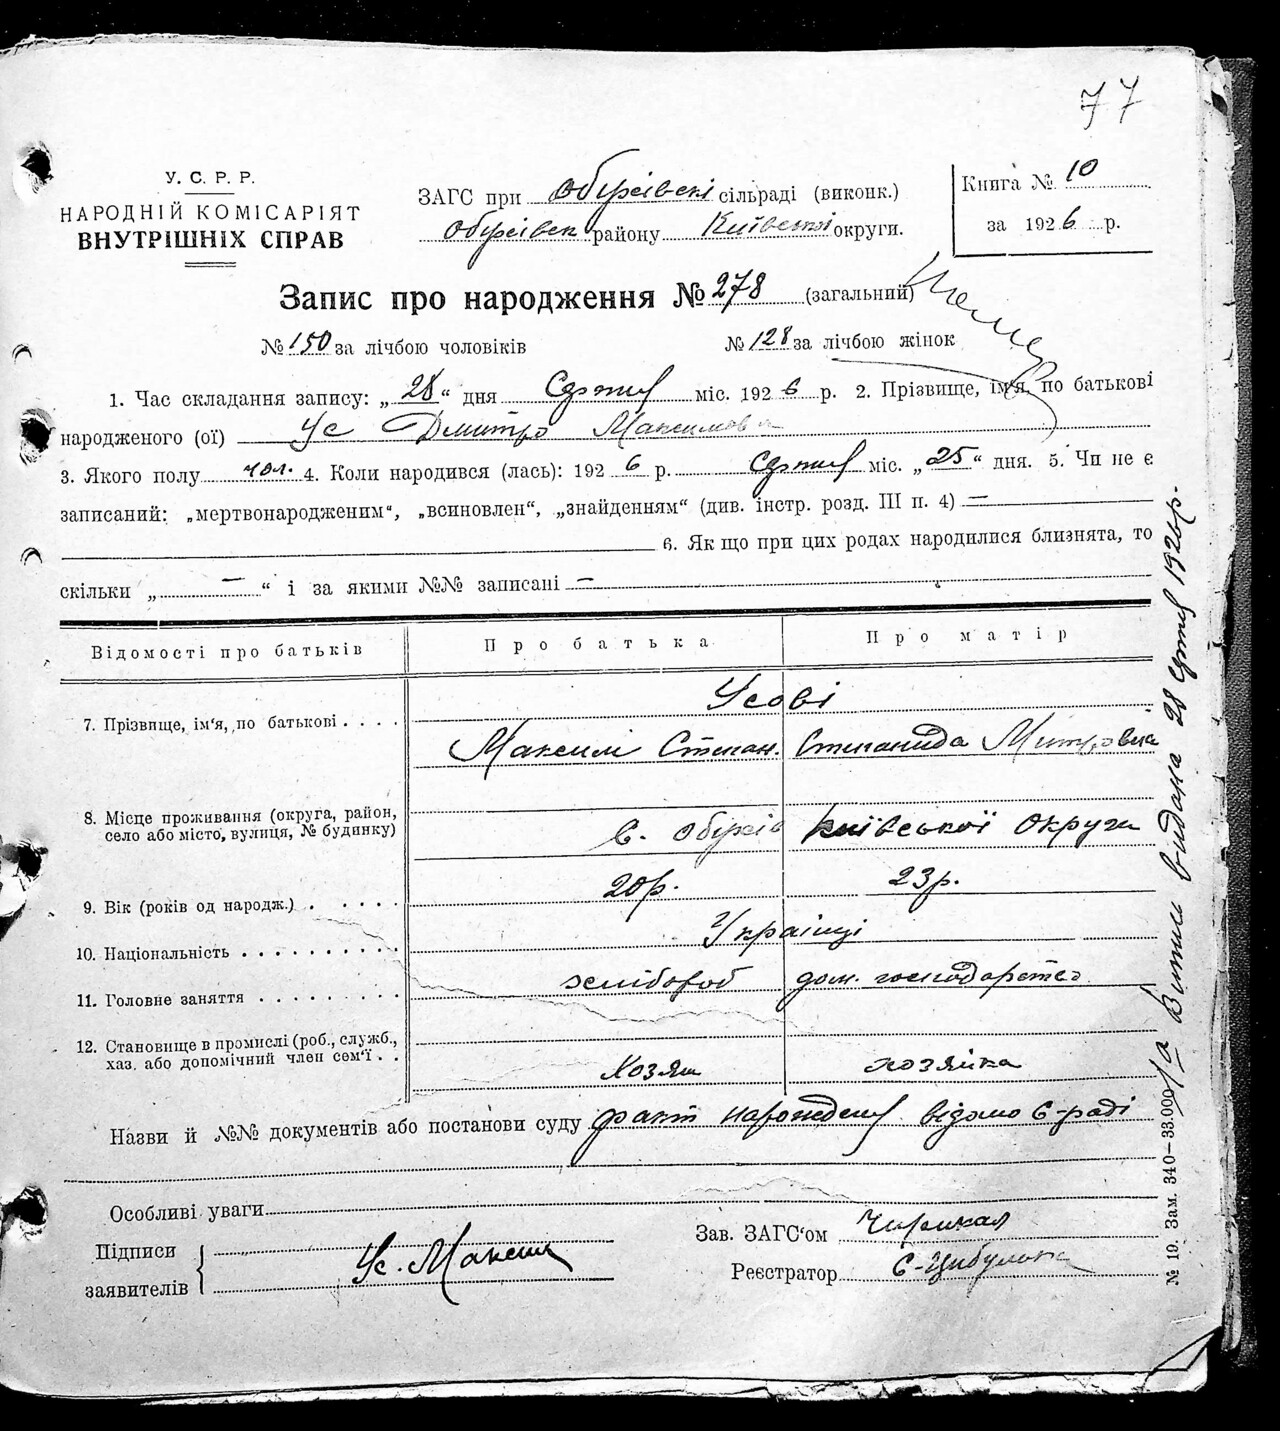 77
У. С. Р. Р.
НАРОДНІЙ КОМІСАРІЯТ
ВНУТРІШНІХ СПРАВ
ЗАГС при Обухівські сільраді (виконк.)
Обухівськ району Київської округи.
Книга № 10
за 1926 р.
Запис про народження № 278 (загальний)
№ 150 за лічбою чоловіків № 128 за лічбою жінок
1. Час складання запису: „28“ дня Серпня міс. 1926 р. 2. Прізвище, ім'я, по батькові
народженого (ої) Ус Дмитро Максимов
3. Якого полу чол. 4. Коли народився (лась): 1926 р. Серпня міс. „25“ дня. 5. Чи не є
записаний: „мертвонародженим“, „всиновлен“, „знайденням“ (див. інстр. розд. III п. 4) =
6. Якщо при цих родах народилися близнята, то
скільки „ — “ і за якими №№ записані —
Відомості про батьків Про батька Про матір
Усові
7. Прізвище, ім‘я, по батькові . . . . Максим Степан. Степанида Митровна
8. Місце проживання (округа, район,
село або місто, вулиця, № будинку) с. Обухів Київської Округи
9. Вік (років од народж.) . . . . . 20р. 23р.
10. Національність . . . . . . . . Українці
11. Головне заняття . . . . . . . . хлібороб дом. господарство
12. Становище в промислі (роб., служб.,
хаз. або допомічний член сем‘ї . . Хозяин хозяйка
Назви й №№ документів або постанови суду факт народження відомо С-раді
Особливі уваги
Підписи
заявителів
Ус. Максим
Зав. ЗАГС‘ом
Реєстратор С-Цибулька
№ 19. Зам. 340—33.000
Витись видана 28 серпня 1926р.